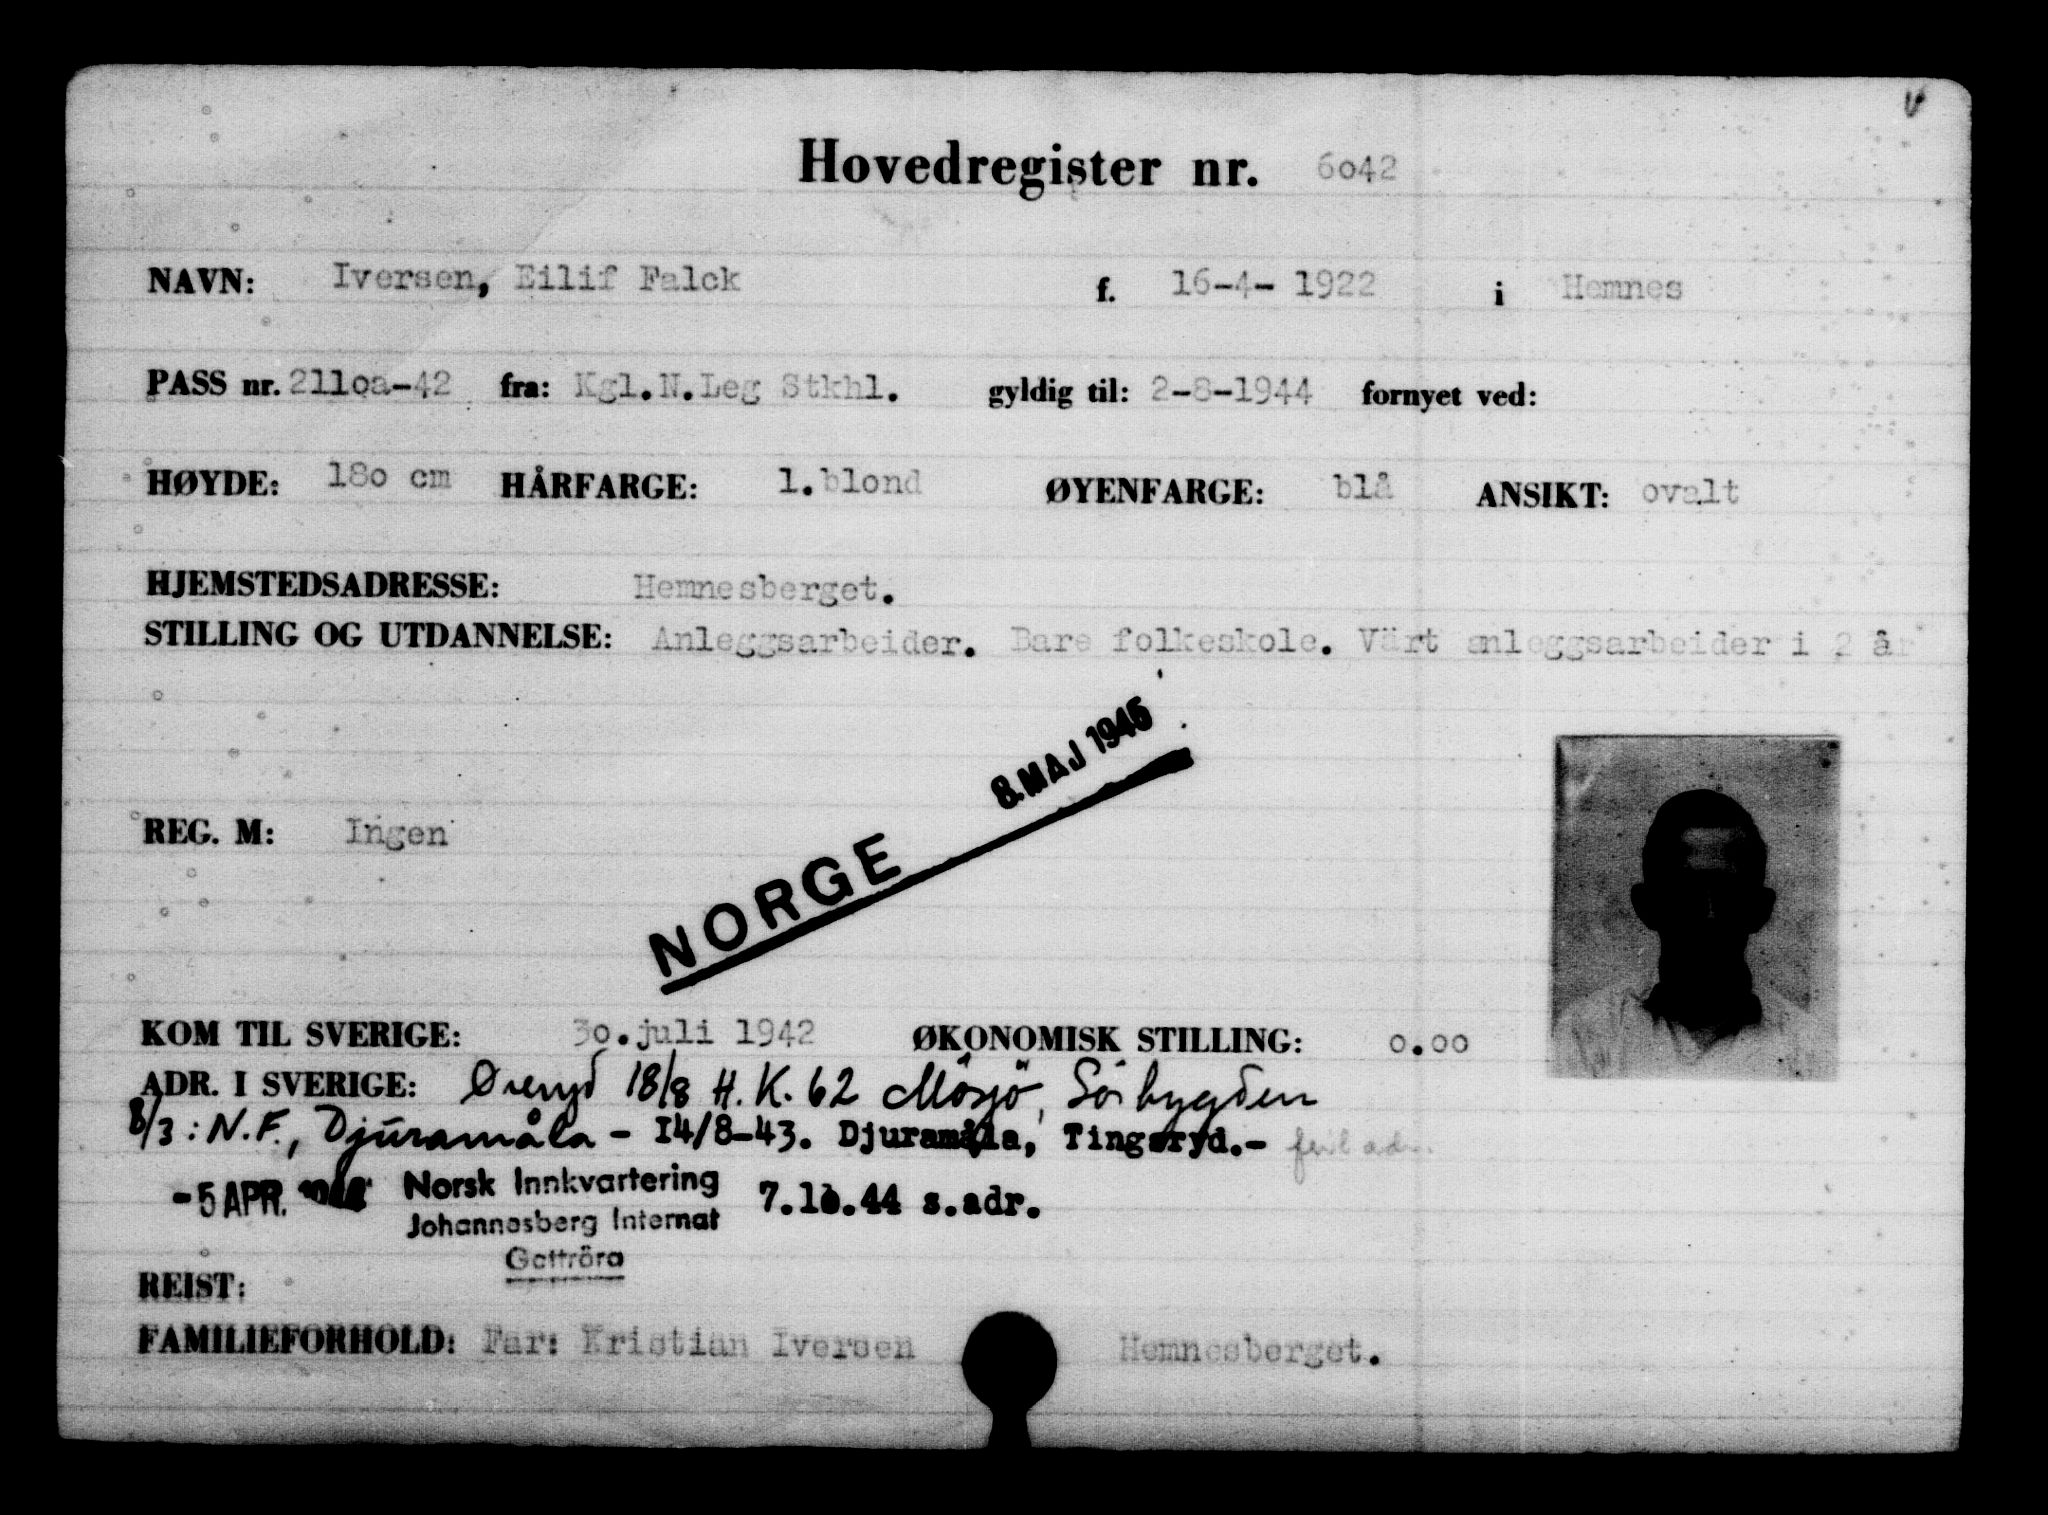 Hovedregister nr. 6o42
NAVN: Iversen, Eilif Falck f. 16-4- 1922 i Hemnes
PASS nr. 211oa-42 fra: Kgl.N.Leg Stkhl. gyldig til: 2-8-1944 fornyet ved:
HØYDE: 18o cm HÅRFARGE: l.blond ØYENFARGE: blå ANSIKT: ovalt
HJEMSTEDSADRESSE: Hemnesberget.
STILLING OG UTDANNELSE: Anleggsarbeider. Bare folkeskole. Värt anleggsarbeider i 2 år
8. MAJ 1945
NORGE
REG. M: Ingen
KOM TIL SVERIGE: 3o.juli 1942 ØKONOMISK STILLING: o.oo
ADR. I SVERIGE: Øreryd 18/8 H.K. 62 Mösjö, Sörbygden
8/3: N.F., Djuramåla - I4/8-43. Djuramåla, Tingsryd.- feil adr.
-5 APR. Norsk Innkvartering 7.1o.44 s.adr.
Johannesberg Internat
Gottröra
REIST:
FAMILIEFORHOLD: Far: Kristian Iversen Hemnesberget.